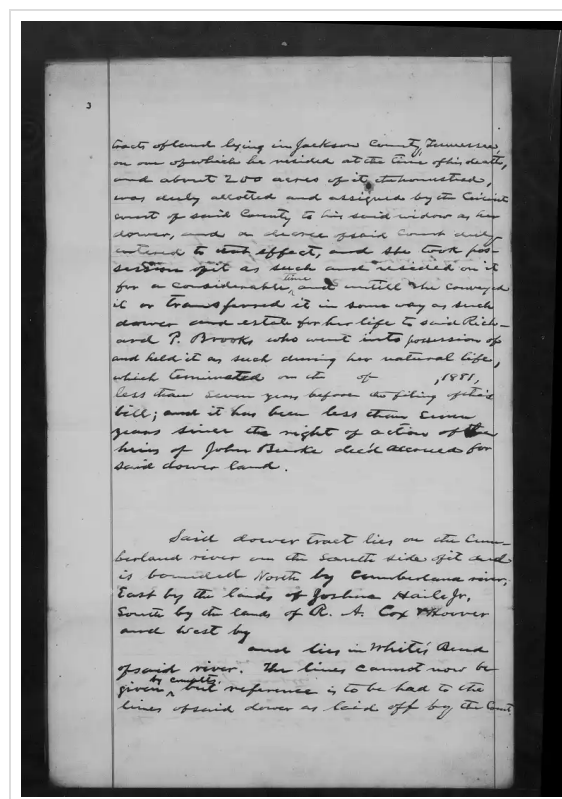 3
tracts of land lying in Jackson County, Tennessee,
on one of which he resided at the time of his death,
and about 200 acres of it, the homestead,
was duly allotted and assigned by the Circuit
court of said County to his said widow as her
dower, and a decree of said Court duly
entered to that effect, and she took pos-
session of it as such and resided on it
for a considerable time, and untill she conveyed
it or transferred it in some way as such
dower and estate for her life to said Rich-
ard P. Brooks who went into possession of
and held it as such during her natural life,
which terminated on the of , 1881,
less than seven years before the filing of this
bill; and it has been less than seven
years since the right of action of the
heirs of John Burke dec'd accrued for
said dower land.
Said dower tract lies on the Cum-
berland river on the South side of it and
is bounded North by Cumberland river,
East by the lands of Joshua Haile Jr,
South by the lands of R. A. Cox & Hoover
and West by
and lies in White's Bend
of said river. The lines cannot now be
given by courses, but reference is to be had to the
lines of said dower as laid off by the Court